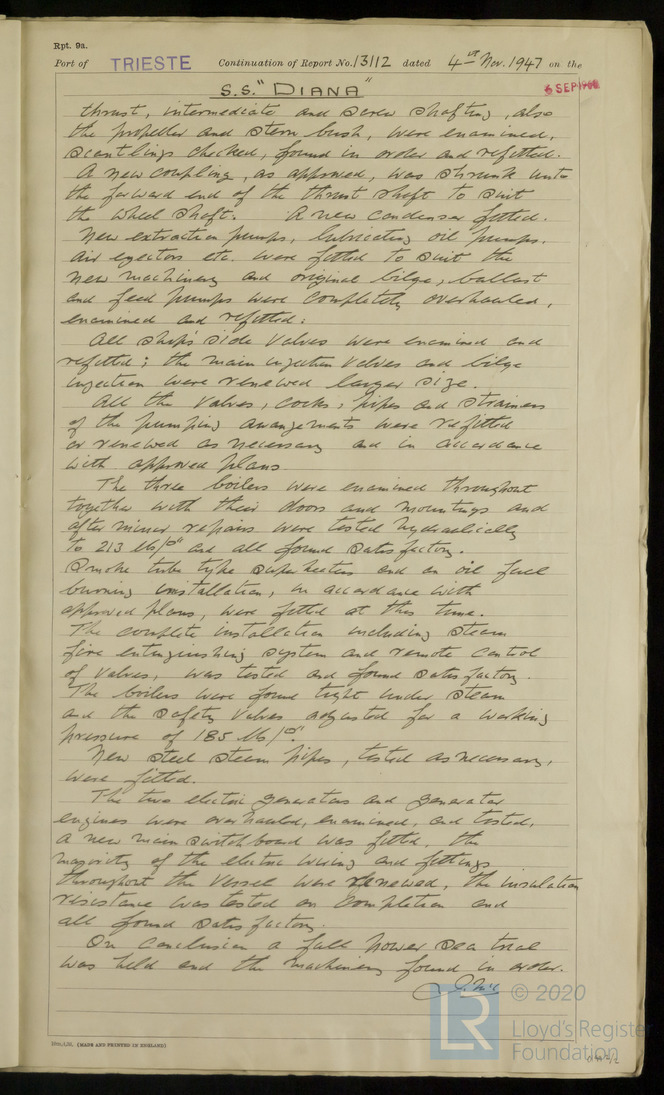 Rpt. 9a.
Port of TRIESTE Continuation of Report No. 13112 dated 4th Nov. 1947 on the
S.S. "DIANA"
6 SEP 19
thrust, intermediate and screw shafting, also
the propeller and stern bush, were examined,
scantlings checked, found in order and refitted.
A new coupling, as approved, was shrunk unto
the forward end of the thrust shaft to suit
the wheel shaft. A new condenser fitted.
New extraction pumps, lubricating oil pumps,
air ejectors etc. were fitted to suit the
new machinery and original bilge, ballast
and feed pumps were completely overhauled,
examined and refitted.
All ship's side valves were examined and
refitted; the main injection valves and bilge
injection were renewed larger size.
All the valves, cocks, pipes and strainers
of the pumping arrangements were refitted
or renewed as necessary and in accordance
with approved plans.
The three boilers were examined throughout
together with their doors and mountings and
after minor repairs were tested hydraulically
to 213 lbs/□" and all found satisfactory.
Smoke tube type superheaters and an oil fuel
burning installation, in accordance with
approved plans, were fitted at this time.
The complete installation including steam
fire extinguishing system and remote control
of valves, was tested and found satisfactory.
The boilers were found tight under steam
and the safety valves adjusted for a working
pressure of 185 lbs/□".
New steel steam pipes, tested as necessary,
were fitted.
The two electric generators and generator
engines were overhauled, examined, and tested,
a new main switchboard was fitted, the
majority of the electric wiring and fittings
throughout the vessel were renewed, the insulation
resistance was tested on completion and
all found satisfactory.
On conclusion a full power sea trial
was held and the machinery found in order.
© 2020
LR
Lloyd's Register
Foundation
(MADE AND PRINTED IN ENGLAND)